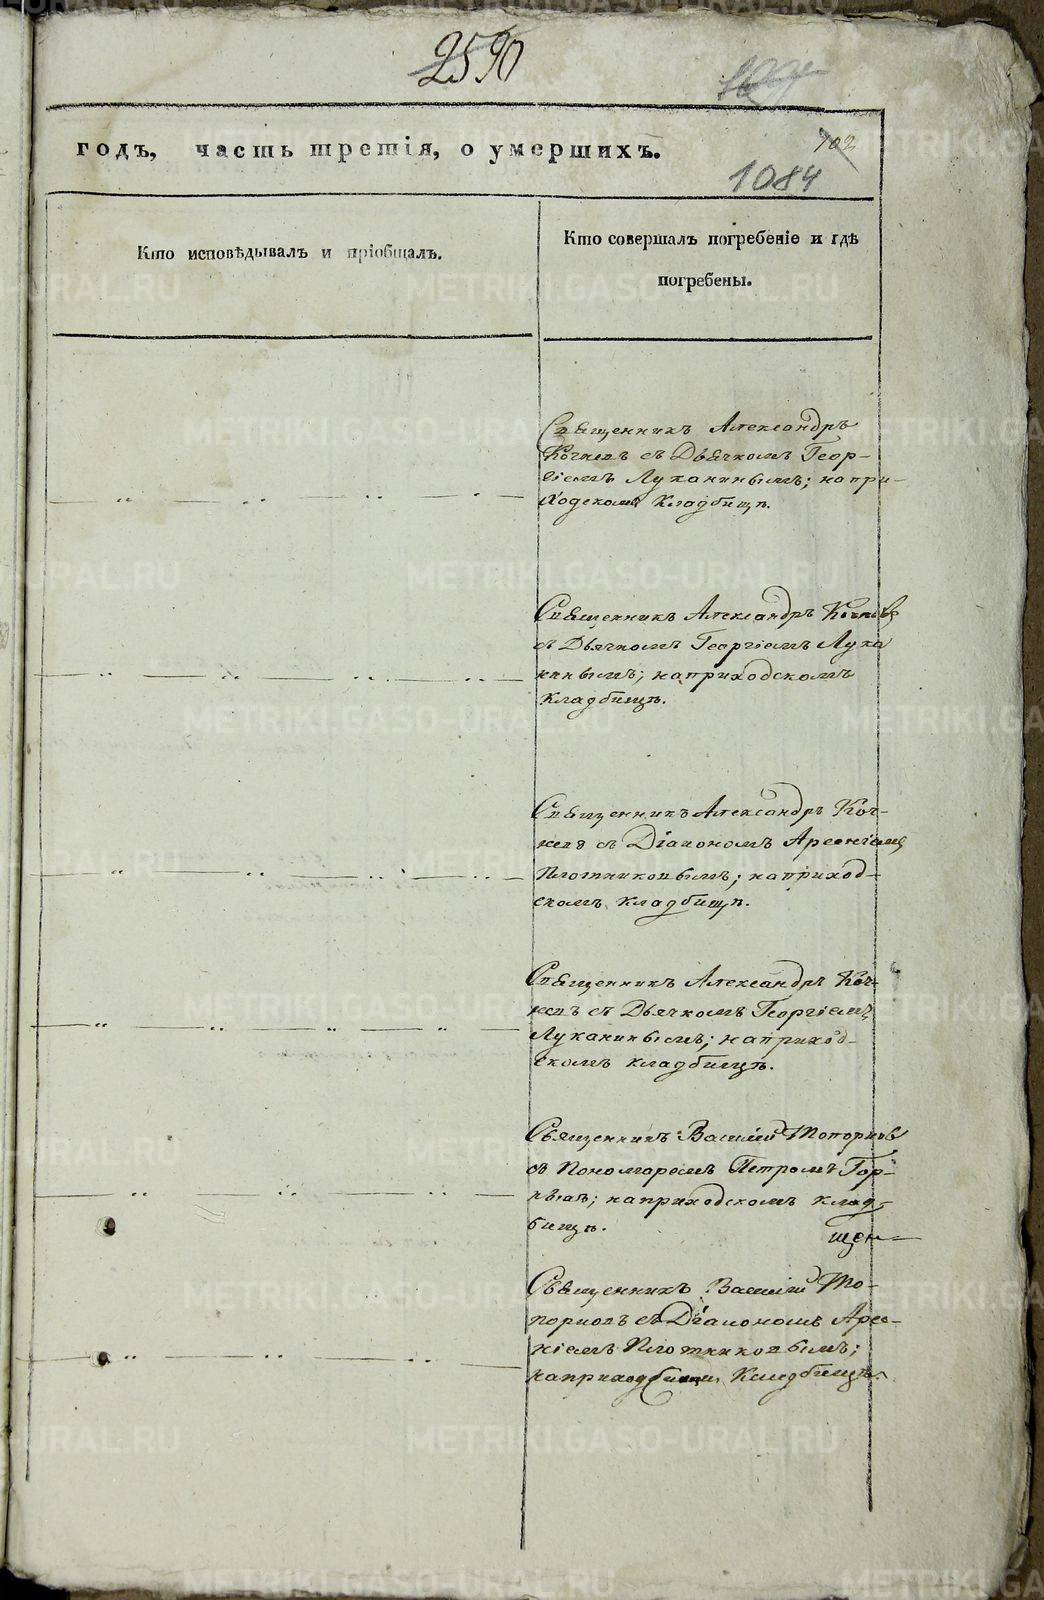 2590
годъ, часть третія, о умершихъ.
702
1084
Кто исповѣдывалъ и пріобщалъ.
Кто совершалъ погребеніе и гдѣ
погребены.
Священникъ Александръ
Кочневъ съ Дьячкомъ Геор-
гіемъ Луканинымъ; на при-
ходскомъ кладбищѣ.
Священникъ Александръ Кочневъ
съ Дьячкомъ Георгіемъ Лука
нинымъ; на приходскомъ
кладбищѣ.
Священникъ Александръ Коч-
невъ съ Діакономъ Арсеніемъ
Плотниковымъ; на приход-
скомъ кладбищѣ.
Священникъ Александръ Коч-
невъ съ Дьячкомъ Георгіемъ
Луканинымъ; на приход-
скомъ кладбищѣ.
Священникъ Василій Топорковъ
съ Пономаремъ Петромъ Гор-
на приходскомъ клад-
бищѣ.
щен-
Священникъ Василій То-
порковъ съ Діакономъ Арсе-
ніемъ Плотниковымъ;
кладбищѣ.
METRIKI.GASO-URAL.RU